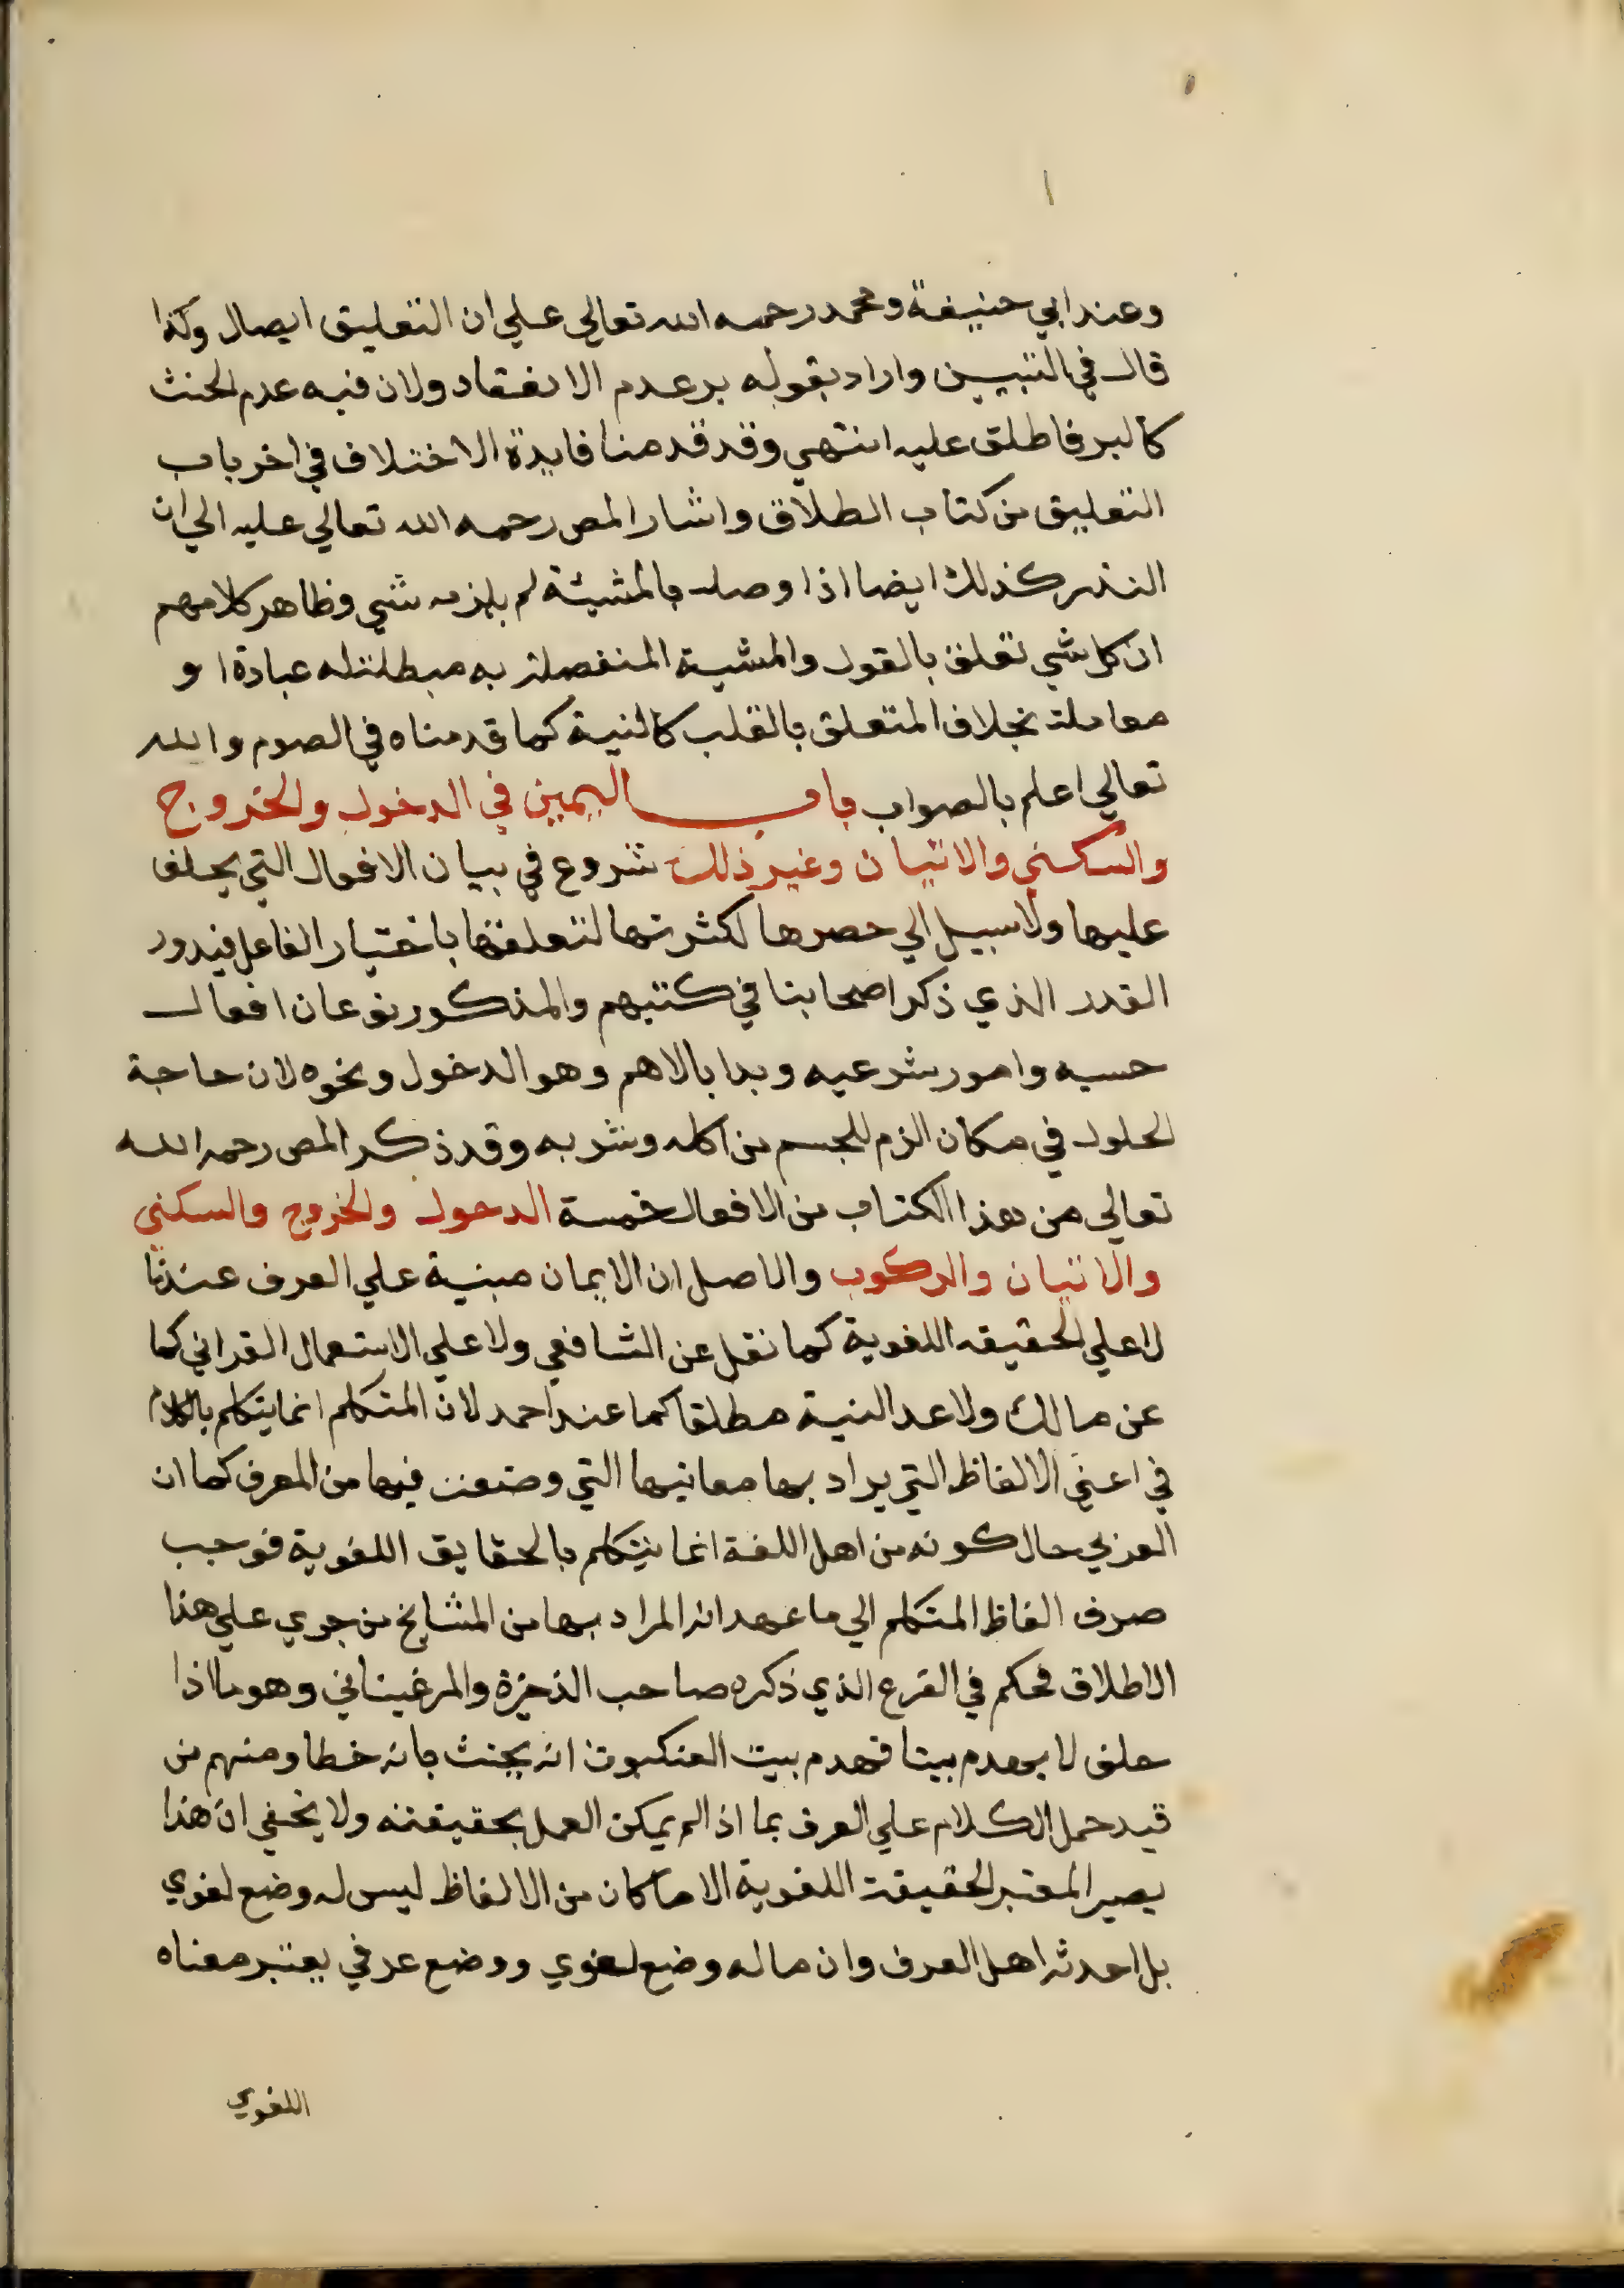 وعند ابي حنيفة ومحمد رحمه الله تعالي علي ان التعليق ايصال وكذا
قال في التبيين واراد بقوله بر عدم الانعقاد ولان فيه عدم الحنث
كالبر فاطلق عليه انتهي وقد قدمنا فايدة الاختلاف في اخر باب
التعليق من كتاب الطلاق واشار المص رحمه الله تعالي عليه الي ان
النذر كذلك ايضا اذا وصله بالمشيئة لم يلزمه شي وظاهر كلامهم
ان كل شي تعلق بالقول والمشية المنفصلة به مبطلة له عبادة او
معاملة بخلاف المتعلق بالقلب كالنية كما قدمناه في الصوم والله
تعالي اعلم بالصواب باب اليمين في الدخول والخروج
والسكني والاتيان وغير ذلك شروع في بيان الافعال التي يحلف
عليها ولا سبيل الي حصرها لكثرتها لتعلقها باختيار الفاعل فيدور
القدر الذي ذكر اصحابنا في كتبهم والمذكور نوعان افعال
حسيه وامور شرعيه وبدا بالاهم وهو الدخول ونحوه لان حاجة
الحلول في مكان الزم للجسم من اكله وشربه وقد ذكر المص رحمه الله
تعالي من هذا الكتاب من الافعال خمسة الدحول والخروج والسكني
والاتيان والركوب والاصل ان الايمان مبنية علي العرف عندنا
لا علي الحقيقه اللغوية كما نقل عن الشافعي ولا علي الاستعمال القراني كما
عن مالك ولا عد النية مطلقا كما عند احمد لان المتكلم انما يتكلم بالكلام
في اعني الالفاظ التي يراد بها معانيها التي وضعت فيها من المعرف كما ان
العربي حال كونه من اهل اللغة انما يتكلم بالحقايق اللغوية فوجب
صرف الفاظ المتكلم الي ما عهد انه المراد بها من المشايخ من جري علي هذا
الاطلاق فحكم في الفرع الذي ذكره صاحب الذخيرة والمرغيناني وهو ما اذا
حلف لا يهدم بيتا فهدم بيت العنكبوت انه يحنث بانه خطا ومنهم من
قيد حمل الكلام علي العرف بما اذا لم يمكن العمل بحقيقته ولا يخفي ان هذا
يصير المعتبر الحقيقة اللغوية الا ما كان من الالفاظ ليس له وضع لغوي
بل احدثه اهل العرف وان ماله وضع لغوي ووضع عرفي يعتبر معناه
اللغوي